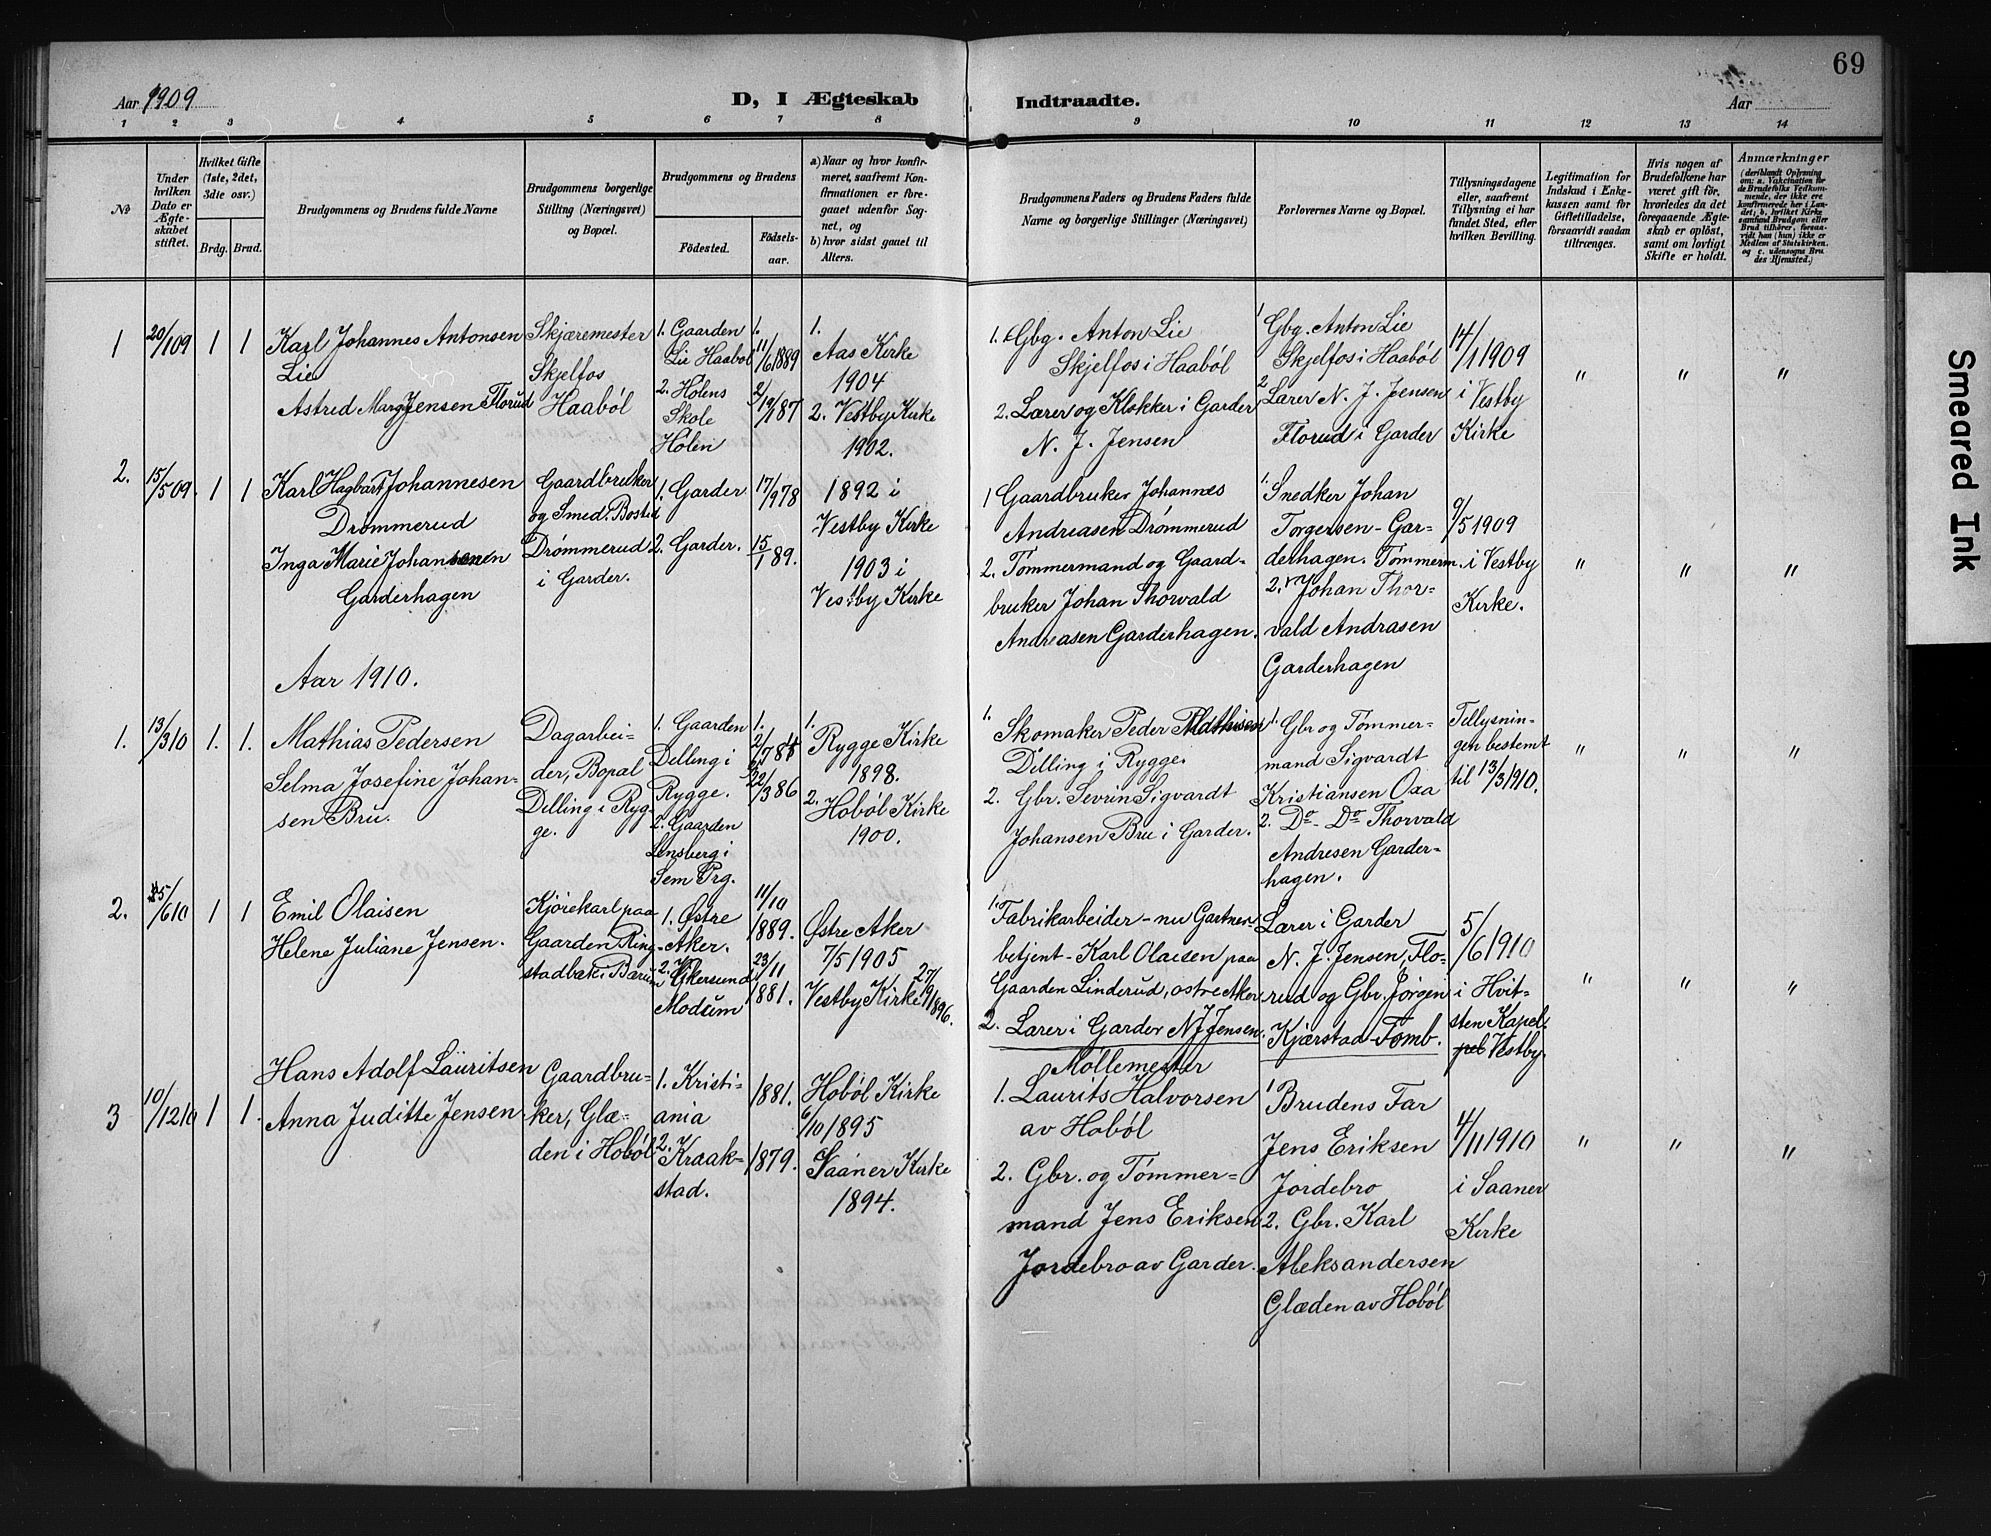 69
Aar 1909
D, I Ægteskab
Indtraadte.
Aar
1 2 3 4 5 6 7 8
9 10 11 12 13 14
No
Under hvilken Dato er Ægteskabet stiftet.
Hvilket Gifte (1ste, 2det, 3die osv.)
Brdg. Brud.
Brudgommens og Brudens fulde Navne
Brudgommens borgerlige Stilling (Næringsvei) og Bopæl.
Brudgommens og Brudens
Fødested. Fødselsaar.
a) Naar og hvor konfirmeret, saafremt Konfirmationen er foregaaet udenfor Sognet, og
b) hvor sidst gaaet til Alters.
Brudgommens Faders og Brudens Faders fulde Navne og borgerlige Stillinger (Næringsvei)
Forlovernes Navne og Bopæl.
Tillysningsdagene eller, saafremt Tillysning ei har fundet Sted, efter hvilken Bevilling.
Legitimation for Indskud i Enkekassen samt for Giftetilladelse, forsaavidt saadan tiltrænges.
Hvis nogen af Brudefolkene har været gift før, hvorledes da det foregaaende Ægteskab er opløst, samt om lovligt Skifte er holdt.
Anmærkninger
(deriblandt Oplysning om: a. Vakcination for de Brudefolks Vedkommende, der ikke ere konfirmerede her i Landet; b. hvilket Kirkesamfund Brudgom eller Brud tilhører, forsaavidt han (hun) ikke er Medlem af Statskirken. og c. udensogns Brudes Hjemsted.)
1
20/1 09
1 1
Karl Johannes Antonsen
Lie
Astrid Marg. Jensen Florud
Skjæremester
Skjelfos
Haabøl
1. Gaarden
Lie Haabøl
2. Hølens
Skole
Hølen
1.
11/6 1889
2/12 187
1.
Aas Kirke
1904
2. Vestby Kirke
1902.
1. Gbg. Anton Lie
Skjelfos i Haabøl
2. Lærer og Klokker i Garder
N. J. Jensen
1 Gbg. Anton Lie
Skjelfos i Haabøl
2 Lærer N. J. Jensen
Florud i Garder
14/1 1909
i Vestby
Kirke
" " "
2.
15/5 09.
1 1
Karl Hagbart Johannesen
Drømmerud
Inga Marie Johansen
Garderhagen
Gaardbruker
og Smed. Bosted
Drømmerud
i Garder.
1. Garder
2. Garder.
17/9 78
15/1 89.
1892 i
Vestby Kirke
1903 i
Vestby Kirke
1 Gaardbruker Johannes
Andreasen Drømmerud
2. Tømmermand og Gaard-
bruker Johan Thorvald
Andreasen Garderhagen.
1. Snedker Johan
Torgersen - Gar-
derhagen. Tømmerm.
2. Johan Thor-
vald Andrasen
Garderhagen
9/5 1909
i Vestby
Kirke.
" " "
Aar 1910.
1.
13/3 10
1. 1.
Mathias Pedersen
Selma Josefine Johan-
sen Bru.
Dagarbei-
der, Bopæl
Dilling i Ryg-
ge.
1. Gaarden
Dilling i
Rygge.
2. Gaarden
Lensberg i
Sem Prg.
1.
/3 86
1.
Rygge Kirke
1898.
2.
Hobøl Kirke
1900.
1.
Skomaker Peder Mathisen
Dilling i Rygge.
2. Gbr. Sevrin Sigvardt
Johansen Bru i Garder.
1. Gbr og Tømmer-
mand Sigvardt
Kristiansen Oxa
2. Do - Do Thorvald
Andresen Garder-
hagen.
Tillysnin-
gen bestemt
til 13/3 1910.
" " "
2.
/6 10
1 1
Emil Olaisen
Helene Juliane Jensen.
Kjørekarl paa
Gaarden Ring-
stadbæk i Bærum
1. Østre
Aker.
2. Vikersund
Modum
11/10
1889.
23/11
1881.
Østre Aker
7/5 1905
Vestby Kirke 27/9 1896.
1. Fabrikarbeider - nu Gartner-
betjent - Karl Olaisen paa
Gaarden Linderud, østre Aker
2. Lærer i Garder N J Jensen.
Lærer i Garder
N. J. Jensen, Flo-
rud og Gbr. Jørgen
Kjærstad - Tomb.
5/6 1910
i Hvit-
sten Kapel.
Vestby.
" " "
3
10/12 10
1 1.
Hans Adolf Lauritsen
Anna Juditte Jensen
Gaardbru-
ker, Glæ-
den i Hobøl
1. Kristi-
ania
2. Kraak-
stad.
1881.
1879.
Hobøl Kirke
6/10 1895
Saaner Kirke
1894.
Møllemester
1. Laurits Halvorsen
av Hobøl
2. Gbr. og Tømmer-
mand Jens Eriksen
Jordebro av Garder.
1 Brudens Far
Jens Eriksen
Jordebro
2. Gbr. Karl
Aleksandersen
Glæden av Hobøl
4/11 1910
i Saaner
Kirke
" " "
Smeared Ink